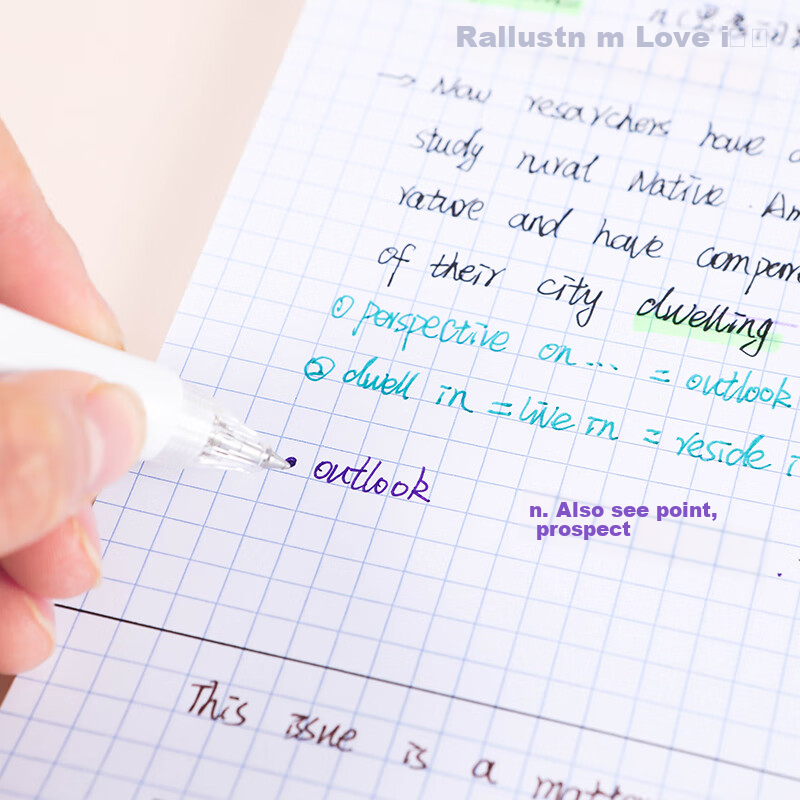 Rallustn m Love i
→ Now researchers have
study rural Native Am
rature and have compar
of their city dwelling
① perspective on ... = outlook
② dwell in = live in = reside i
• outlook
n. Also see point,
prospect
This issue is a matte